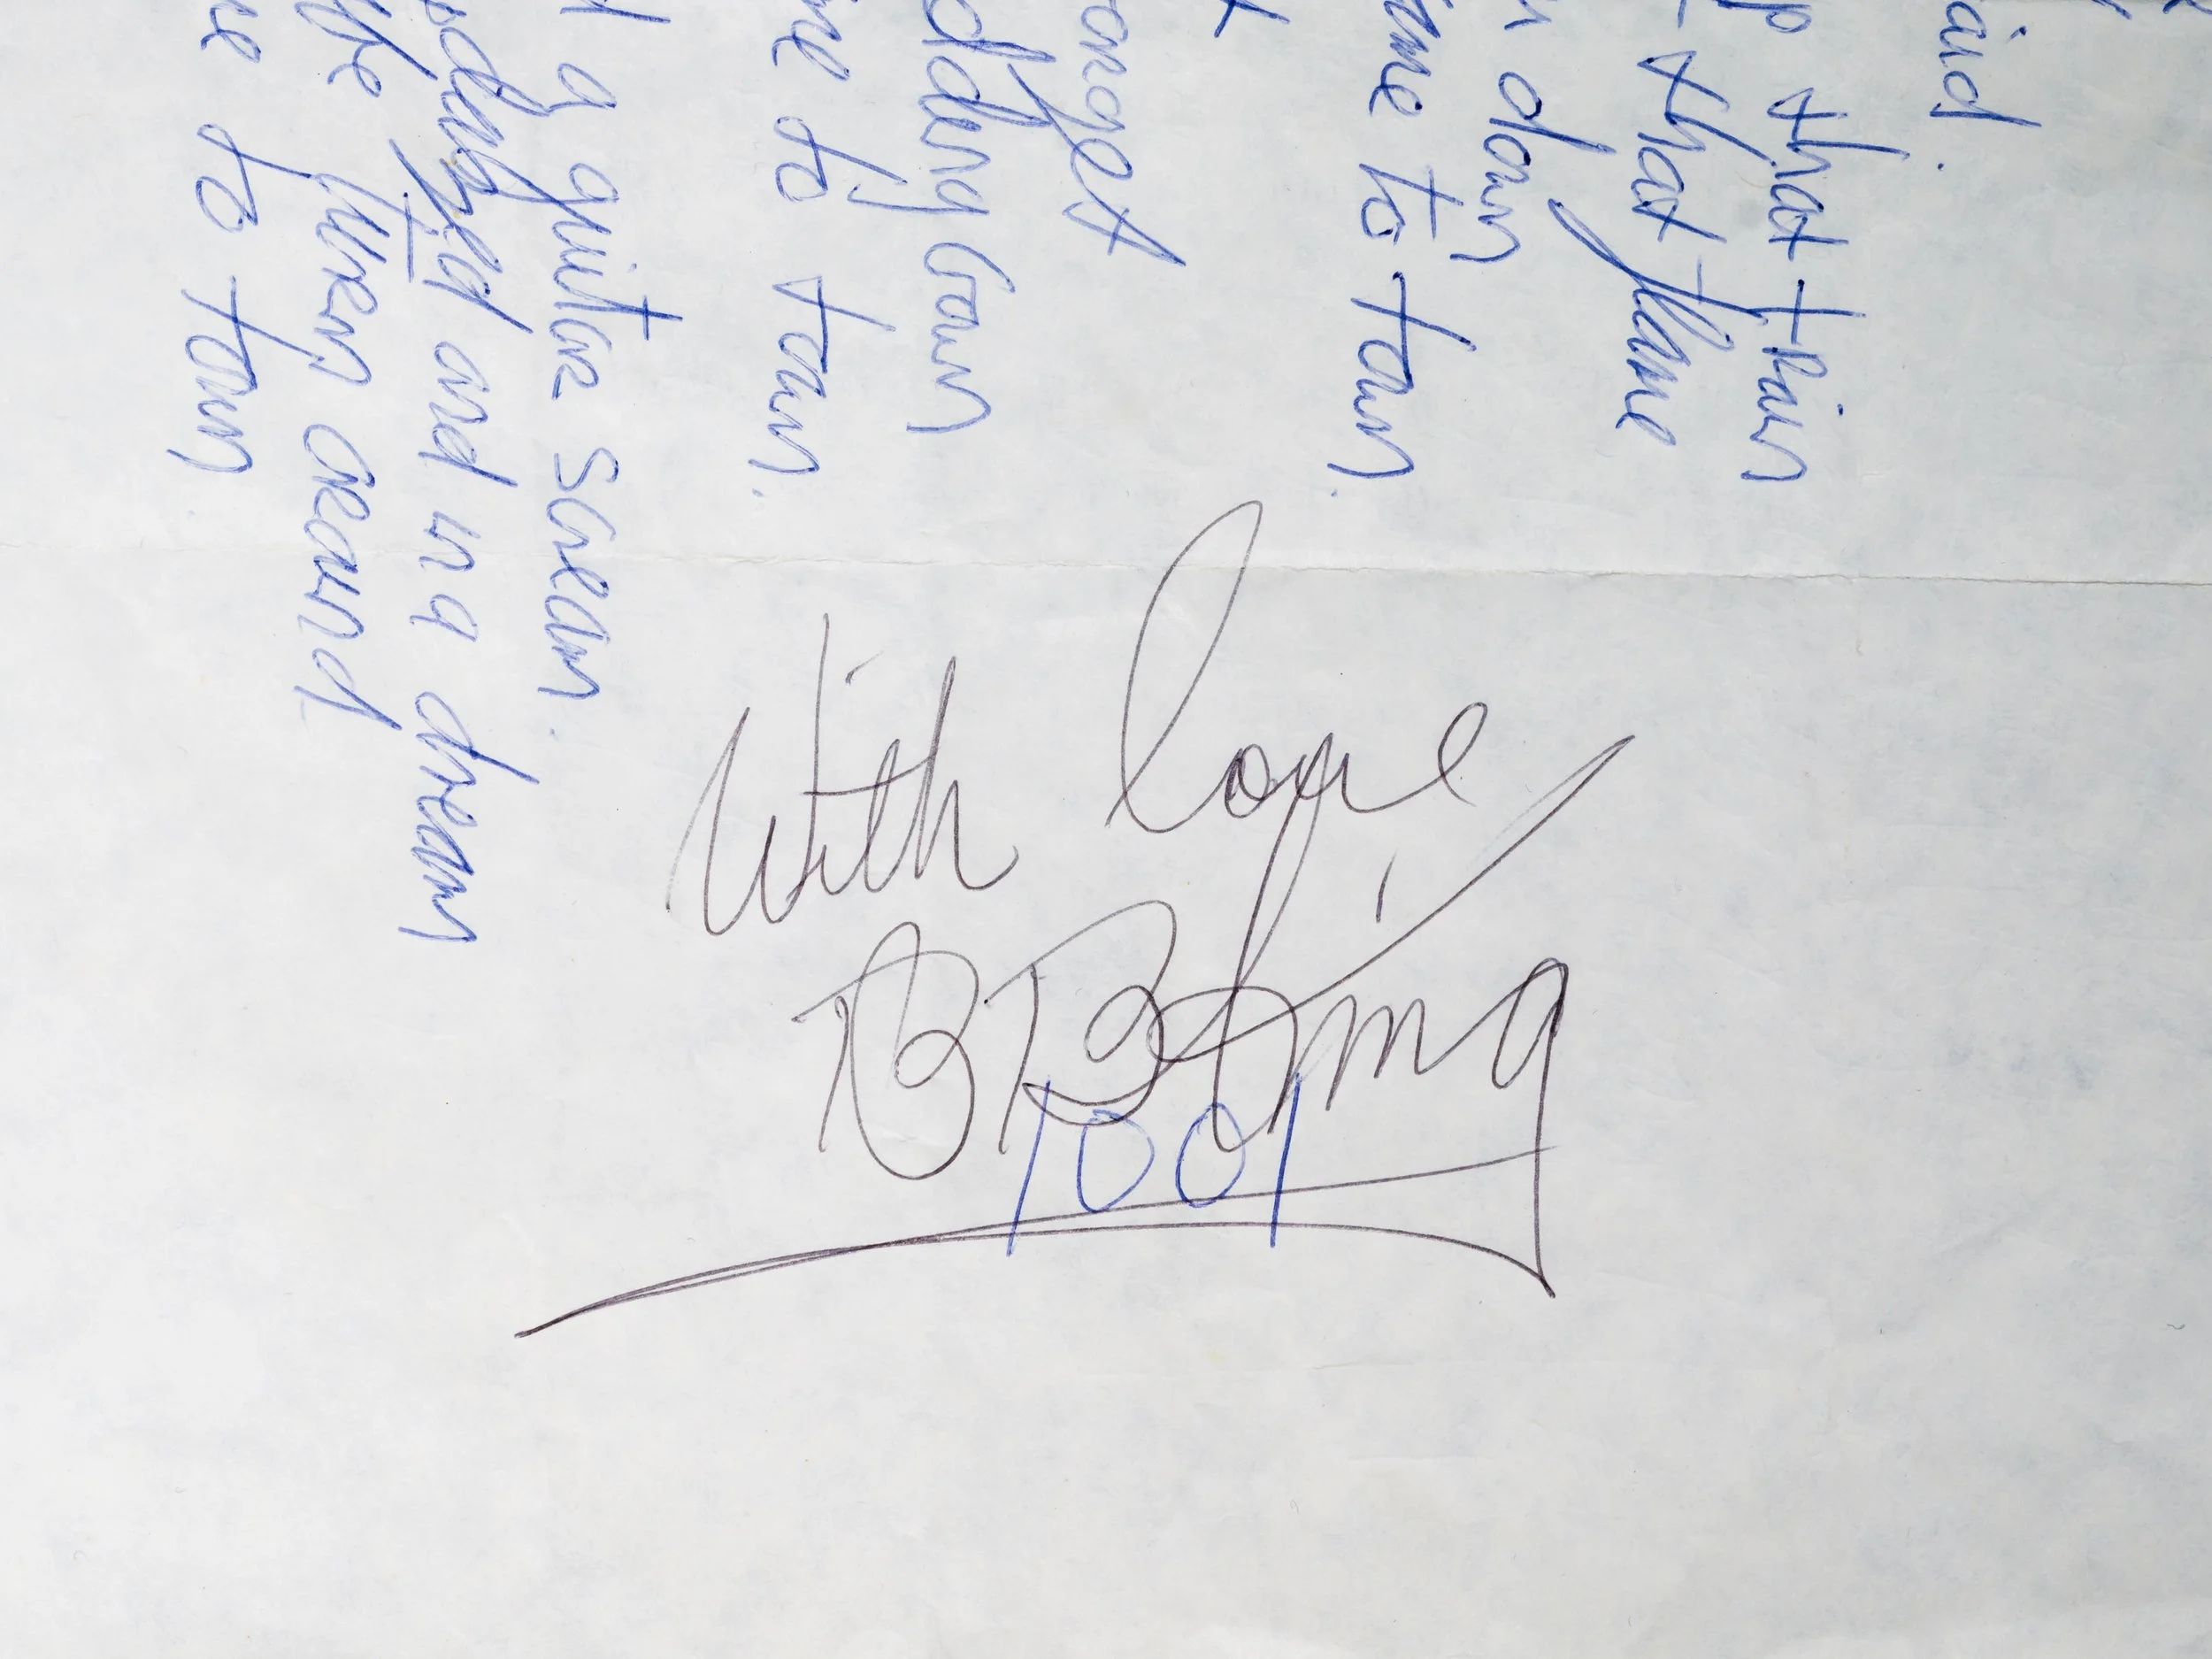 p that train
that flame
n down
ome to town.
orget
dding Gown
me to town.
a guitar scream.
and in a dream
turn around
me to town
With love
BB King
1001